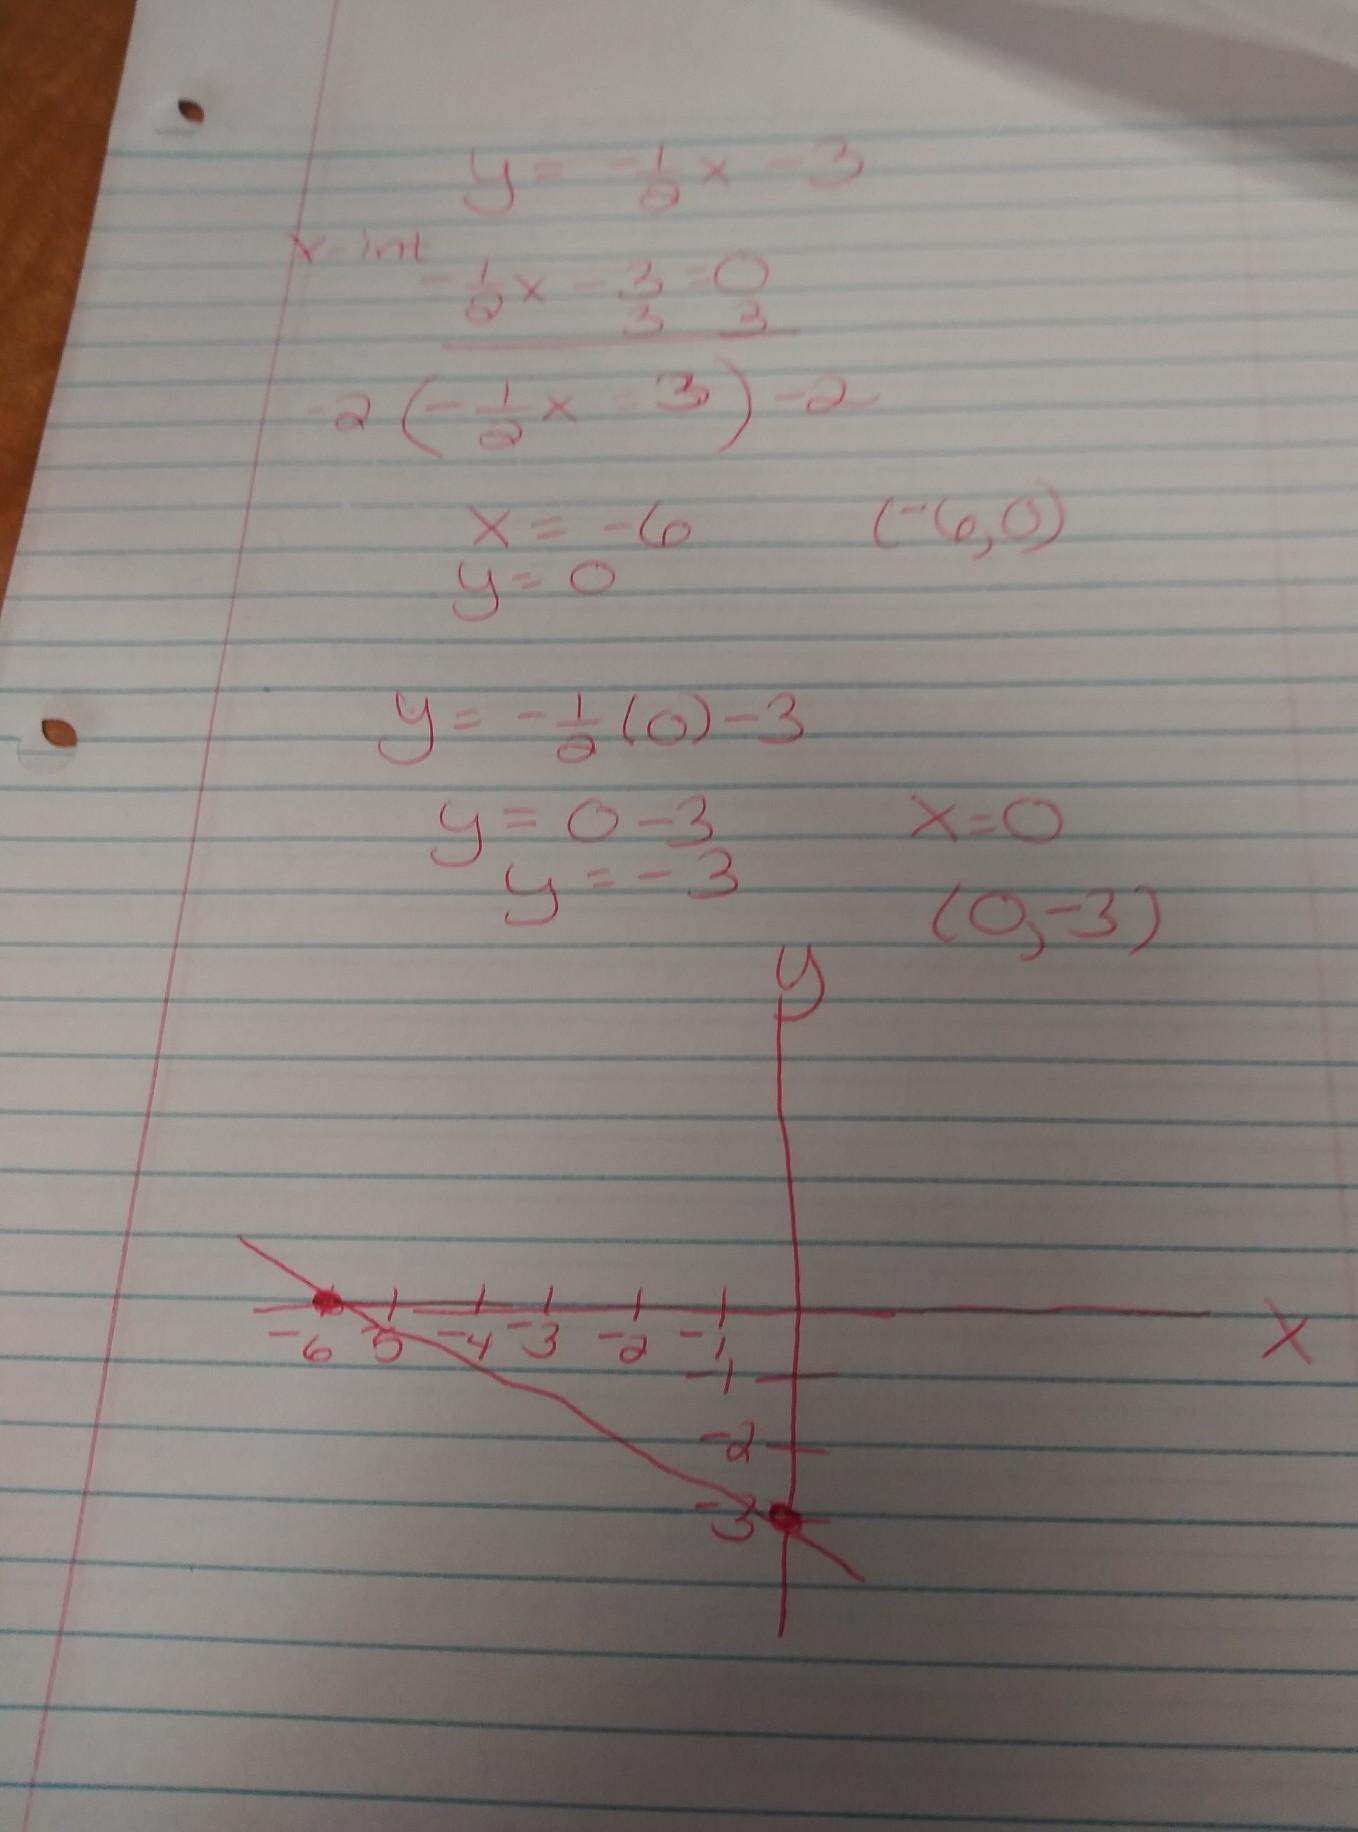 y = -1/2 x - 3
x-int
-1/2 x - 3 = 0
3 3
-2 ( -1/2 x = 3 ) -2
x = -6 (-6,0)
y = 0
y = -1/2 (0) - 3
y = 0 - 3 x = 0
y = -3 (0,-3)
y
-6 -5 -4 -3 -2 -1 x
-1
-2
-3